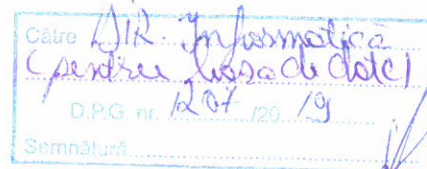 Către DIR. Informatică
(pentru baza de date)
D.P.G. nr. 1207 /20 19
Semnătură